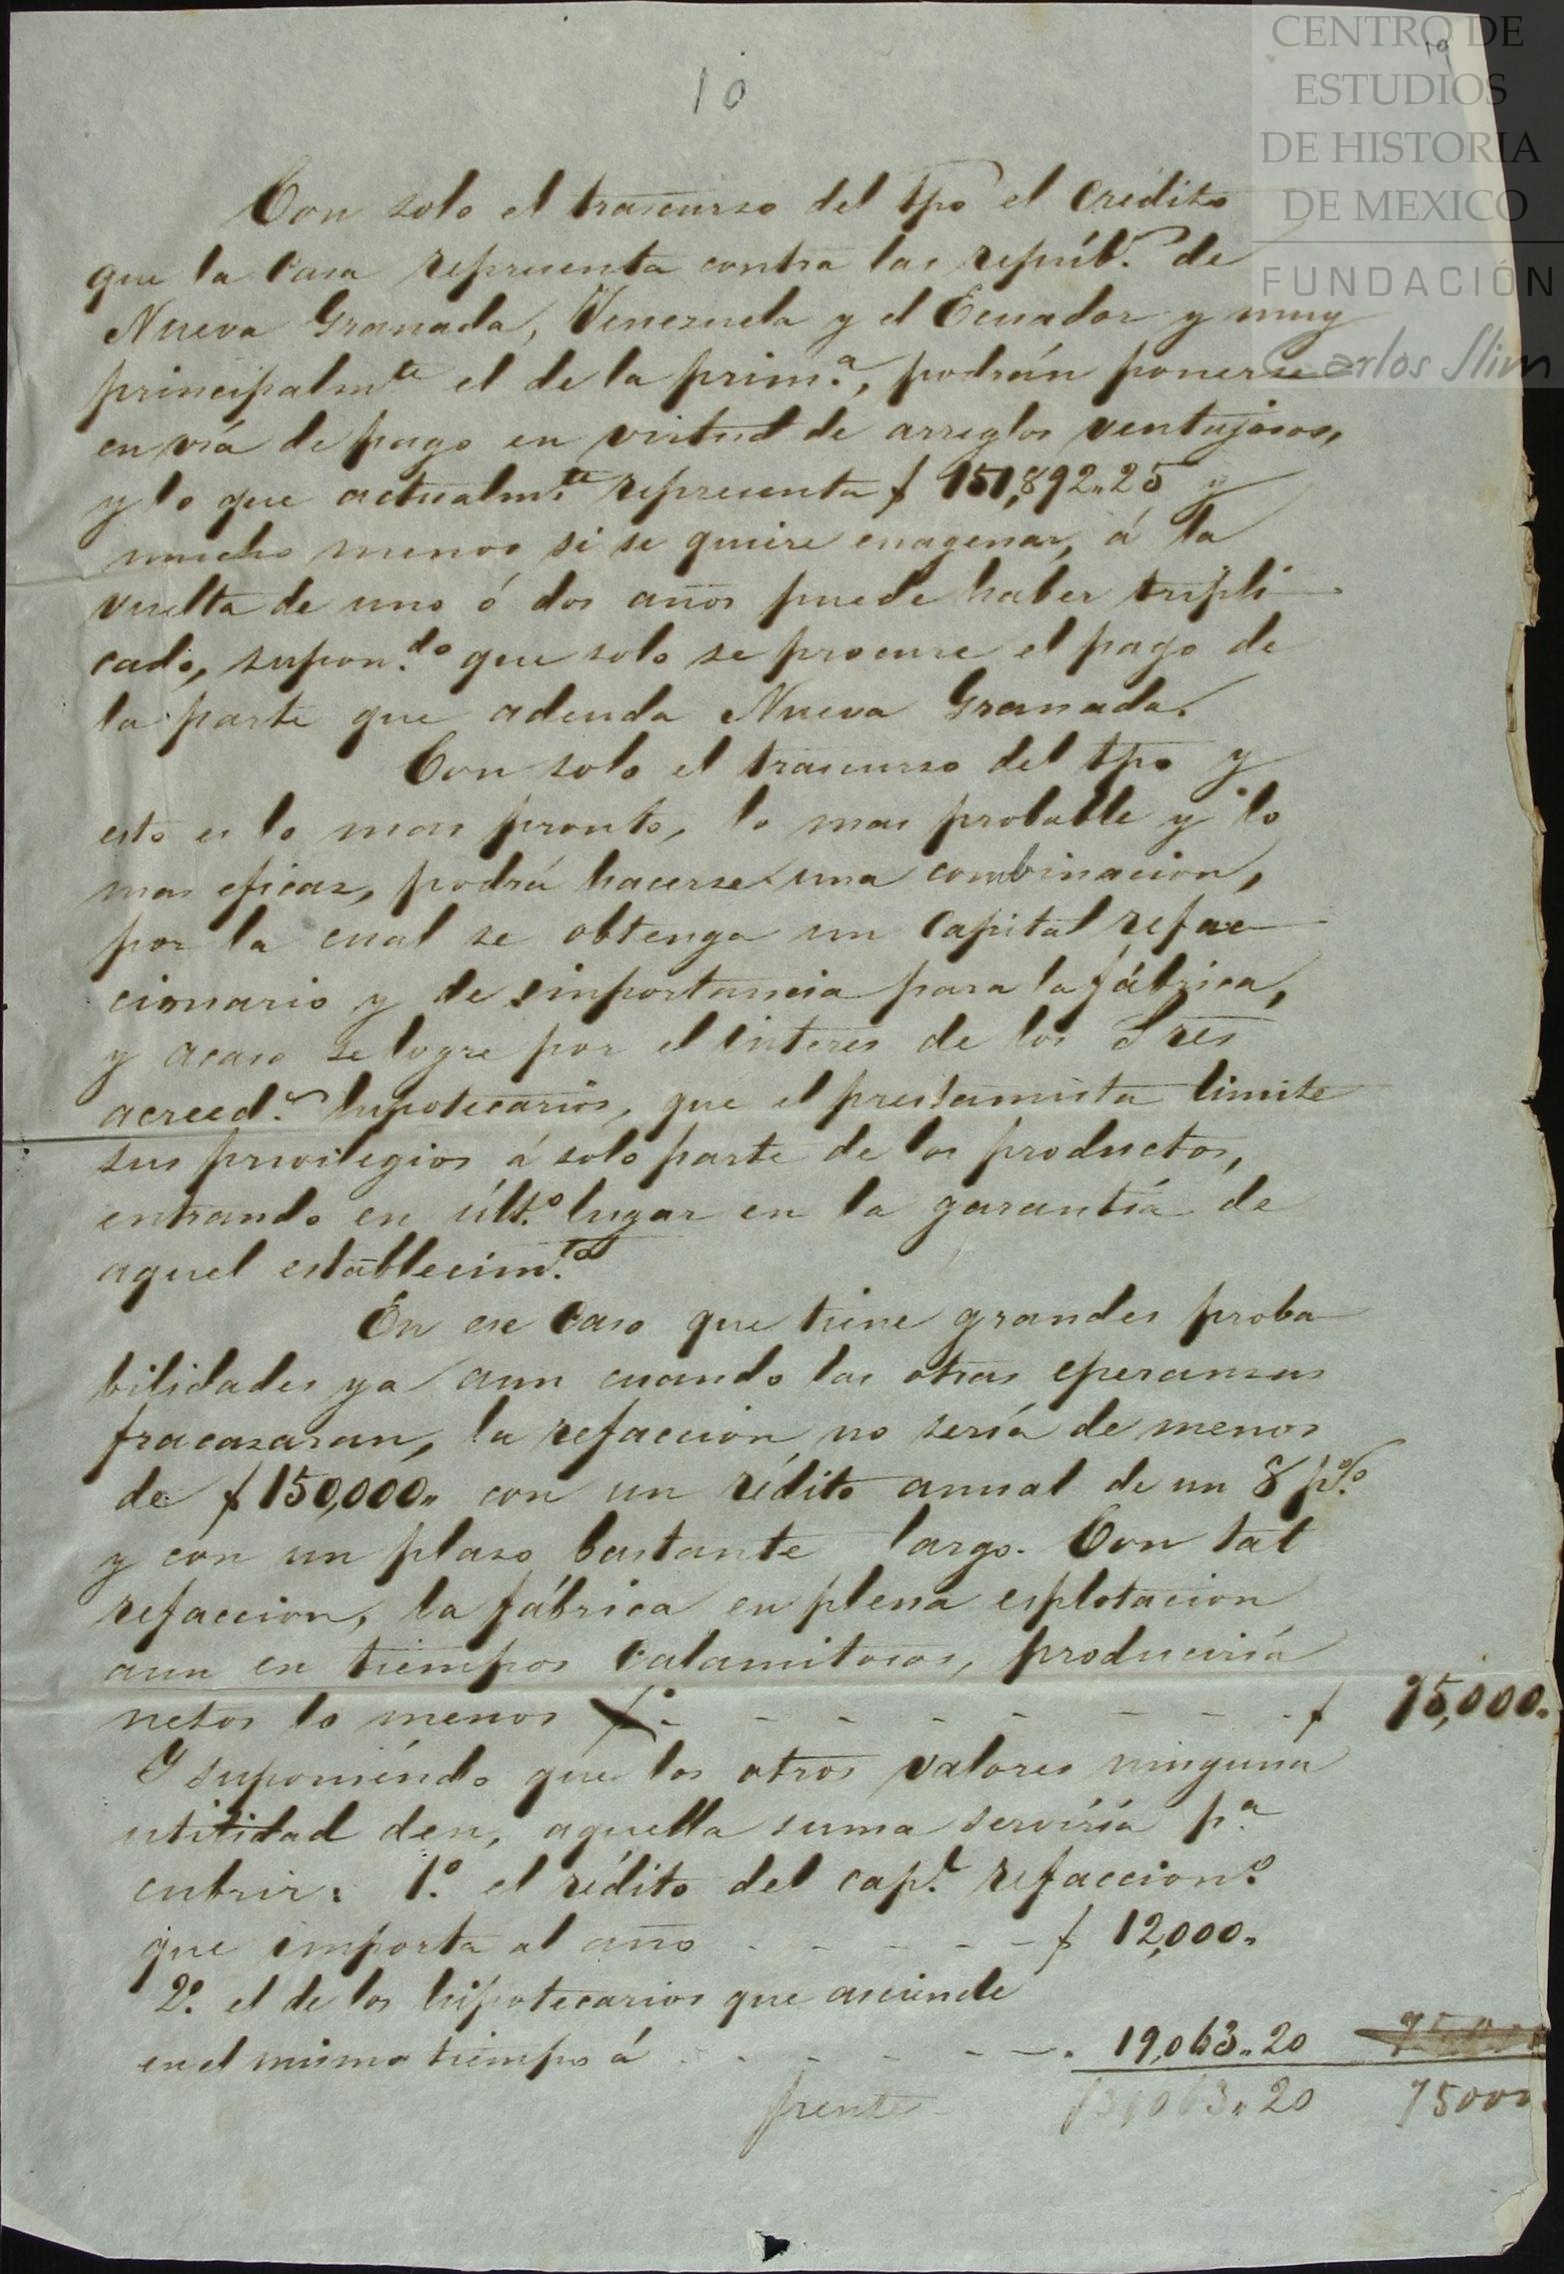 CENTRO DE
ESTUDIOS
DE HISTORIA
DE MEXICO
FUNDACIÓN
Carlos Slim
19
10
Con solo el trascurso del tpo el crédito
que la Casa representa contra las repúb.s de
Nueva Granada, Venezuela y el Ecuador y muy
principalmte el de la prim.a, podrán ponerse
en vía de pago en virtud de arreglos ventajosos,
y lo que actualm.te representa $ 151,892.,25 y
mucho menos si se quiere enagenar, á la
vuelta de uno ó dos años puede haber tripli-
cado, supon.do que solo se procure el pago de
la parte que adeuda Nueva Granada.
Con solo el trascurso del tpo y
esto es lo mas pronto, lo mas probable y lo
mas eficaz, podrá hacerse una combinacion,
por la cual se obtenga un Capital refac-
cionario y de importancia para la fábrica,
y acaso se logre por el interes de los Sres
acreed.s hipotecarios, que el prestamista limite
sus privilegios á solo parte de los productos,
entrando en últ.o lugar en la garantía de
aquel establecim.to
En ese Caso que tiene grandes proba-
bilidades ya aun cuando las otras eperanzas
fracazaran, la refaccion no sería de menos
de $ 150,000., con un rédito annal de un 8 p.%
y con un plazo bastante largo. Con tal
refaccion, la fábrica en plena esplotacion
aun en tiempos Calamitosos, produciría
netos lo menos - - - - - - - - $ 75,000.,
Y suponiéndo que los otros valores ninguna
utilidad den, aquella suma serviría p.a
cubrir: 1.o el rédito del cap.l refaccion.o
que importa al año - - - - - $ 12,000.,
2.o el de los hipotecarios que asciende
en el mismo tiempo á - - - - - - 19,063.,20 75000
frente $ 31,063.,20 75000